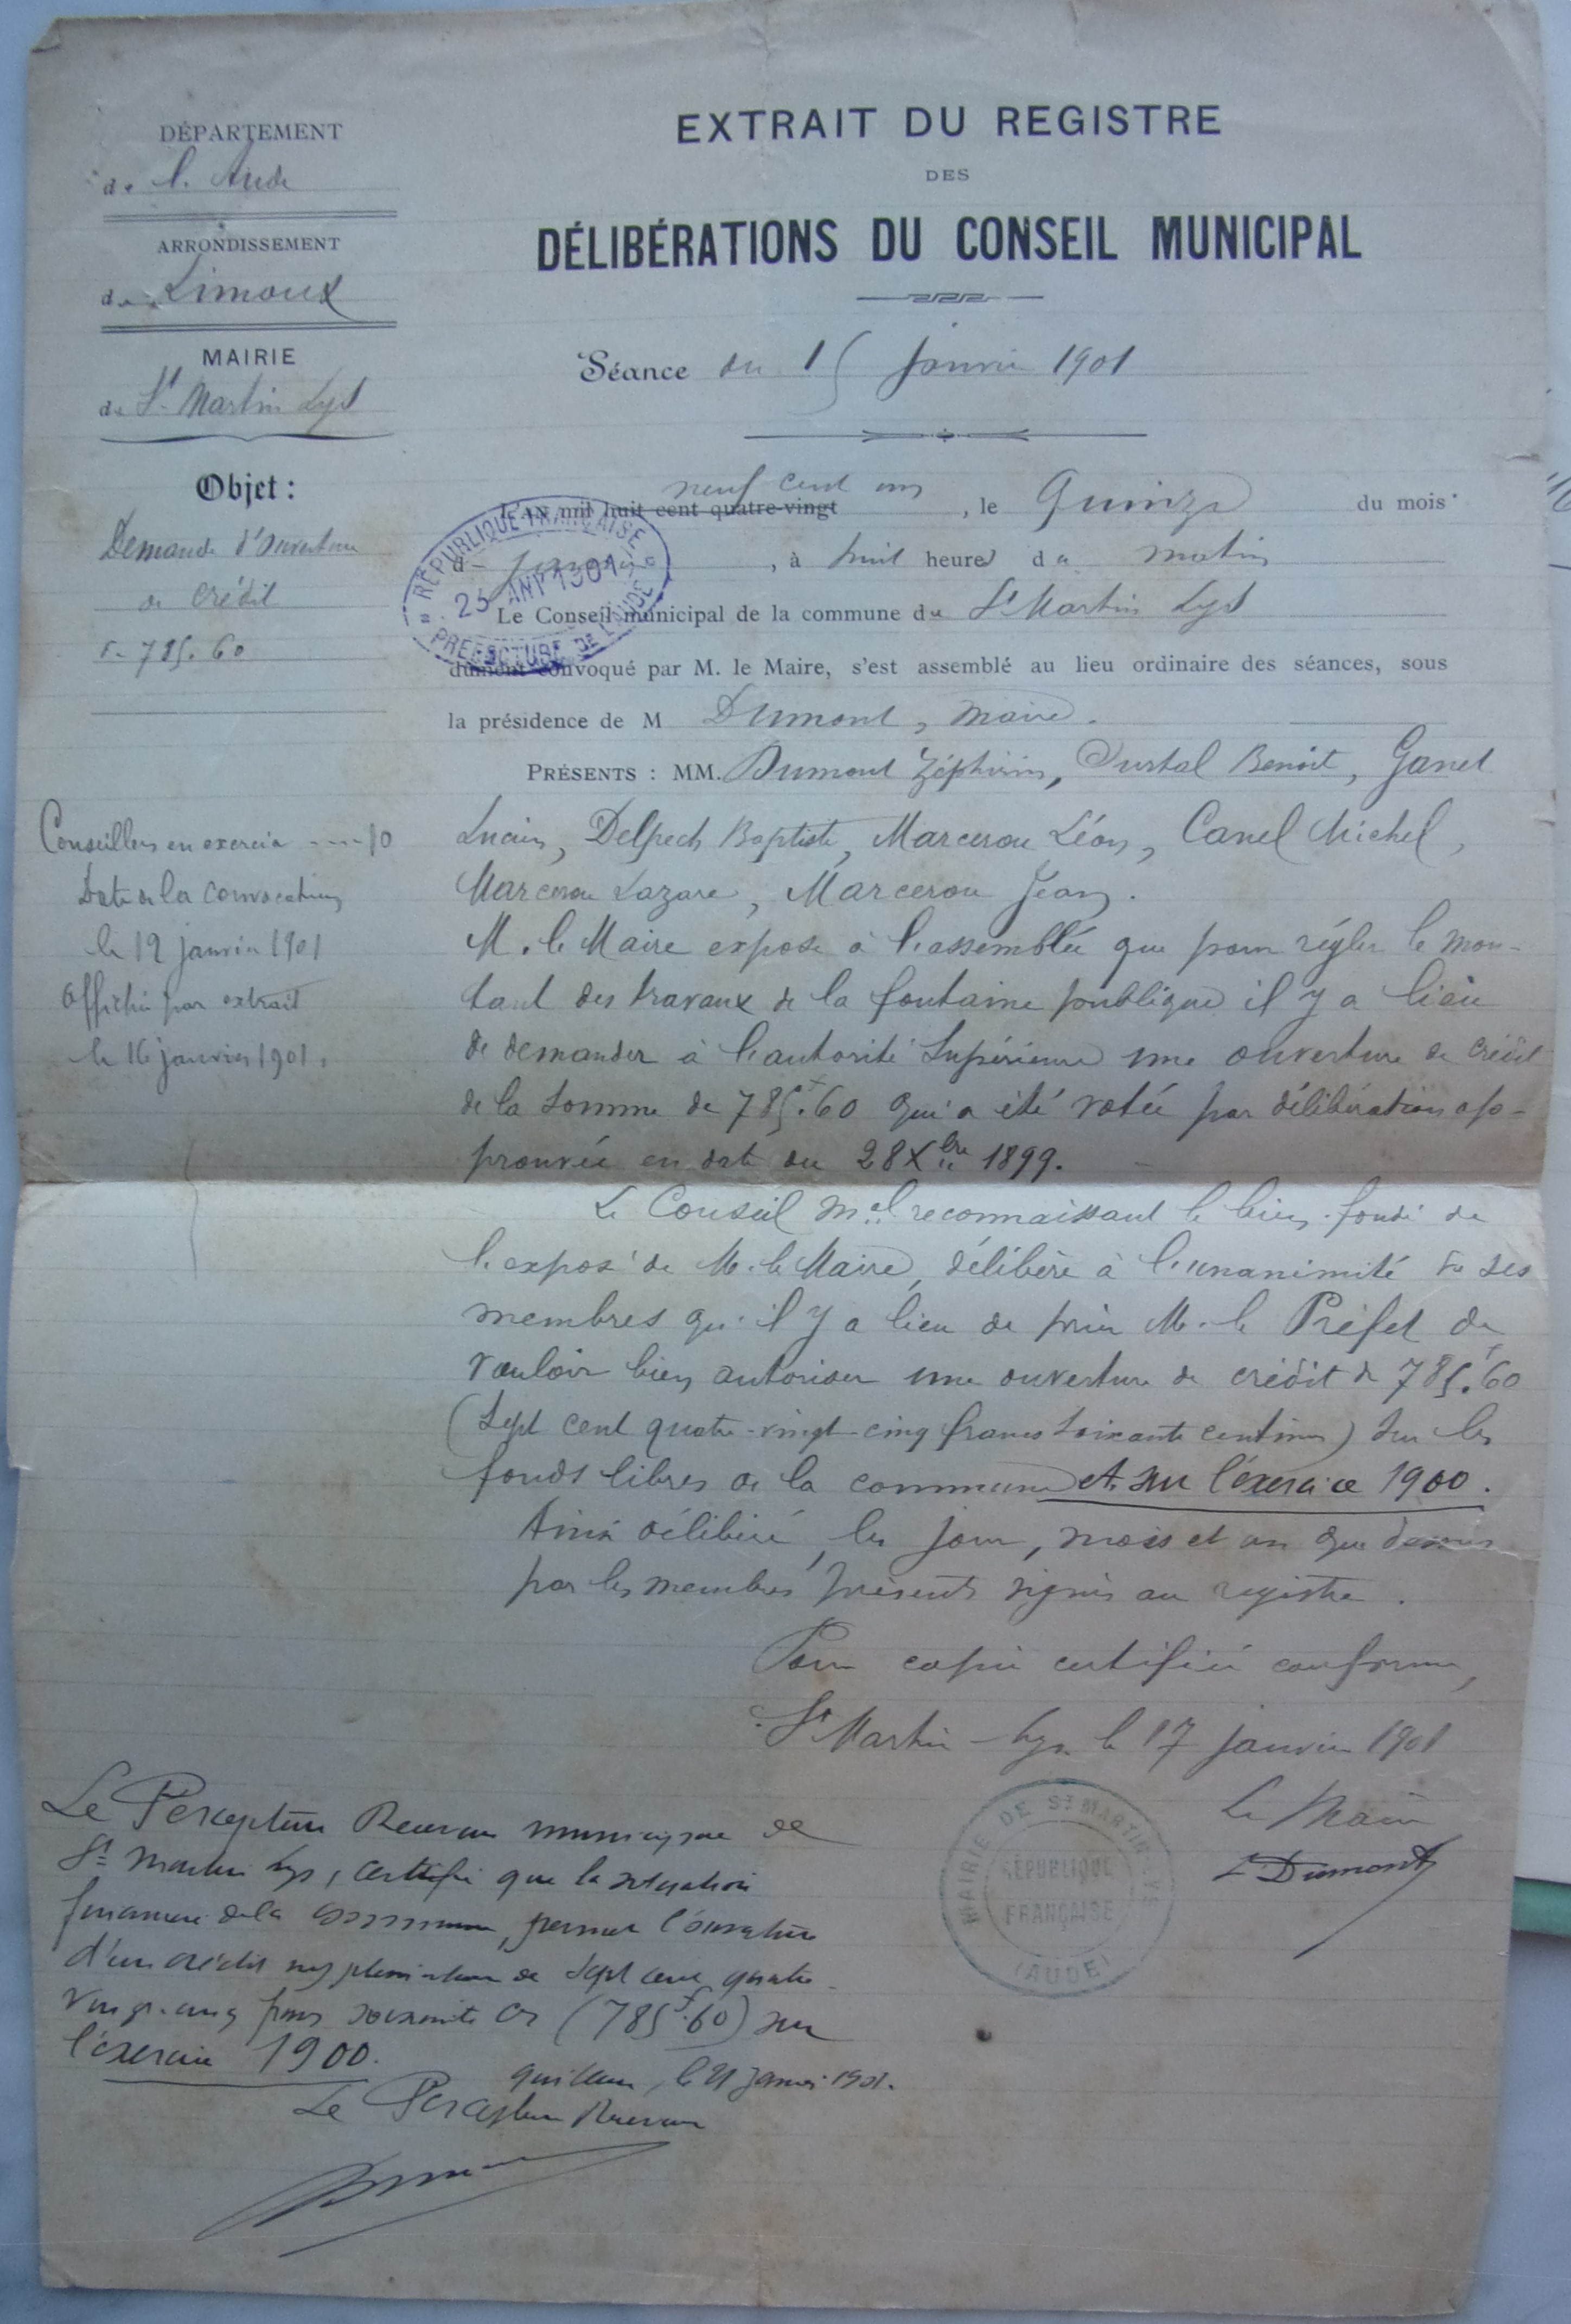 DÉPARTEMENT
de l'Aude
ARRONDISSEMENT
de Limoux
MAIRIE
de St Martin Lys
EXTRAIT DU REGISTRE
DES
DÉLIBÉRATIONS DU CONSEIL MUNICIPAL
Séance du 15 Janvier 1901
Objet :
Demande d'ouverture
de crédit
de 785.60
Conseillers en exercice ---- 10
Date de la convocation
le 12 janvier 1901
Affiché par extrait
le 16 janvier 1901.
neuf cent un
L'an mil huit cent quatre-vingt , le Quinze du mois
d , à huit heures du matin
Le Conseil municipal de la commune de St Martin Lys
dûment convoqué par M. le Maire, s'est assemblé au lieu ordinaire des séances, sous
la présidence de M Dumont, Maire.
PRÉSENTS : MM. Dumont Zéphirin, Surtal Benoît, Ganel
Lucien, Delpech Baptiste, Marcerou Léon, Canel Michel,
Marcerou Lazare, Marcerou Jean.
M. le Maire expose à l'assemblée que pour régler le mon-
tant des travaux de la fontaine publique il y a lieu
de demander à l'autorité Supérieure une ouverture de crédit
de la Somme de 785f.60 qui a été votée par délibération ap-
prouvée en date du 28 Xbre 1899.
Le Conseil Mel reconnaissant le bien-fondé de
l'exposé de M. le Maire, délibère à l'unanimité de ses
membres qu'il y a lieu de prier M. le Préfet de
vouloir bien autoriser une ouverture de crédit de 785f.60
(Sept cent quatre-vingt-cinq francs soixante centimes) sur les
fonds libres de la commune et sur l'exercice 1900.
Ainsi délibéré, les jour, mois et an que dessus
par les membres présents signés au registre.
Pour copie certifiée conforme,
St Martin-Lys le 17 janvier 1901
Le Maire
Z. Dumont
RÉPUBLIQUE FRANÇAISE
25 JANV 1901
PRÉFECTURE DE L'AUDE
MAIRIE DE ST MARTIN-LYS
RÉPUBLIQUE
FRANÇAISE
(AUDE)
Le Percepteur Receveur municipal de
St Martin Lys, certifie que la situation
financière de la commune, permet l'ouverture
d'un crédit supplémentaire de Sept cent quatre-
vingt-cinq francs soixante cs (785f.60) sur
l'exercice 1900.
Quillan, le 21 Janvier 1901.
Le Percepteur Receveur